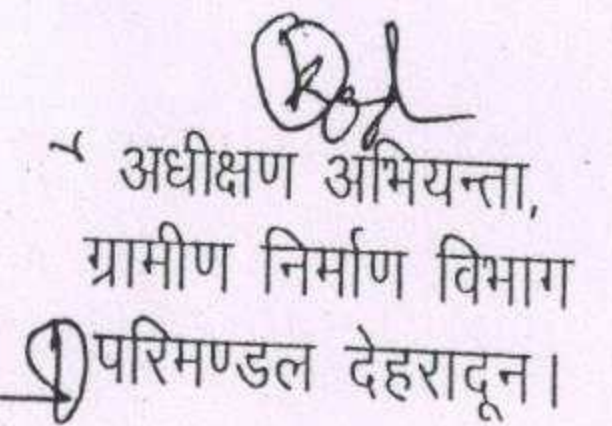 अधीक्षण अभियन्ता,
ग्रामीण निर्माण विभाग
परिमण्डल देहरादून।